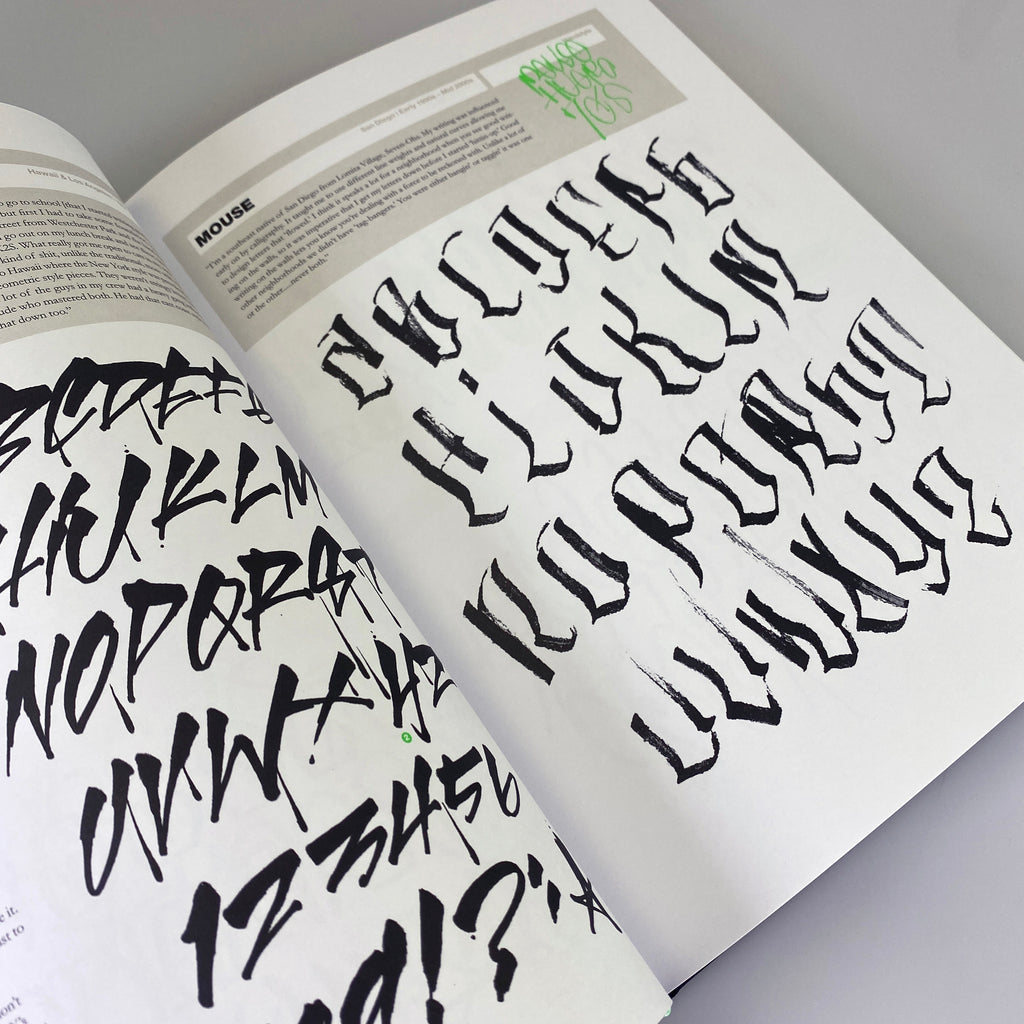 Hawaii & Los Angeles
go to school [that I started
but first I had to take some
street from Westchester Park, and
go out on my lunch break and
K2S. What really got me open to
kind of shit, unlike the traditional
to Hawaii where the New York style
geometric style pieces. They weren't
lot of the guys in my crew had a heavy
dude who mastered both. He had that
that down too."
BCDEFG
HIJKLM
NOPQRS
UVWXYZ
123456
!?"
San Diego | Early 1990s - Mid 2000s
MOUSE
"I'm a southeast native of San Diego from Lomita Village, Seven-Oho. My writing was influenced
early on by calligraphy. It taught me to use different line weights and natural curves allowing me
to design letters that 'flowed.' I think it speaks a lot for a neighborhood when you see good writ-
ing on the walls, so it was imperative that I get my letters down before I started 'turnin up.' Good
writing on the walls lets you know you're dealing with a force to be reckoned with. Unlike a lot of
other neighborhoods we didn't have 'tag-bangers.' You were either bangin' or taggin' it was one
or the other.....never both."
ABCDEFG
HIJKLM
NOPQRST
UVWXYZ